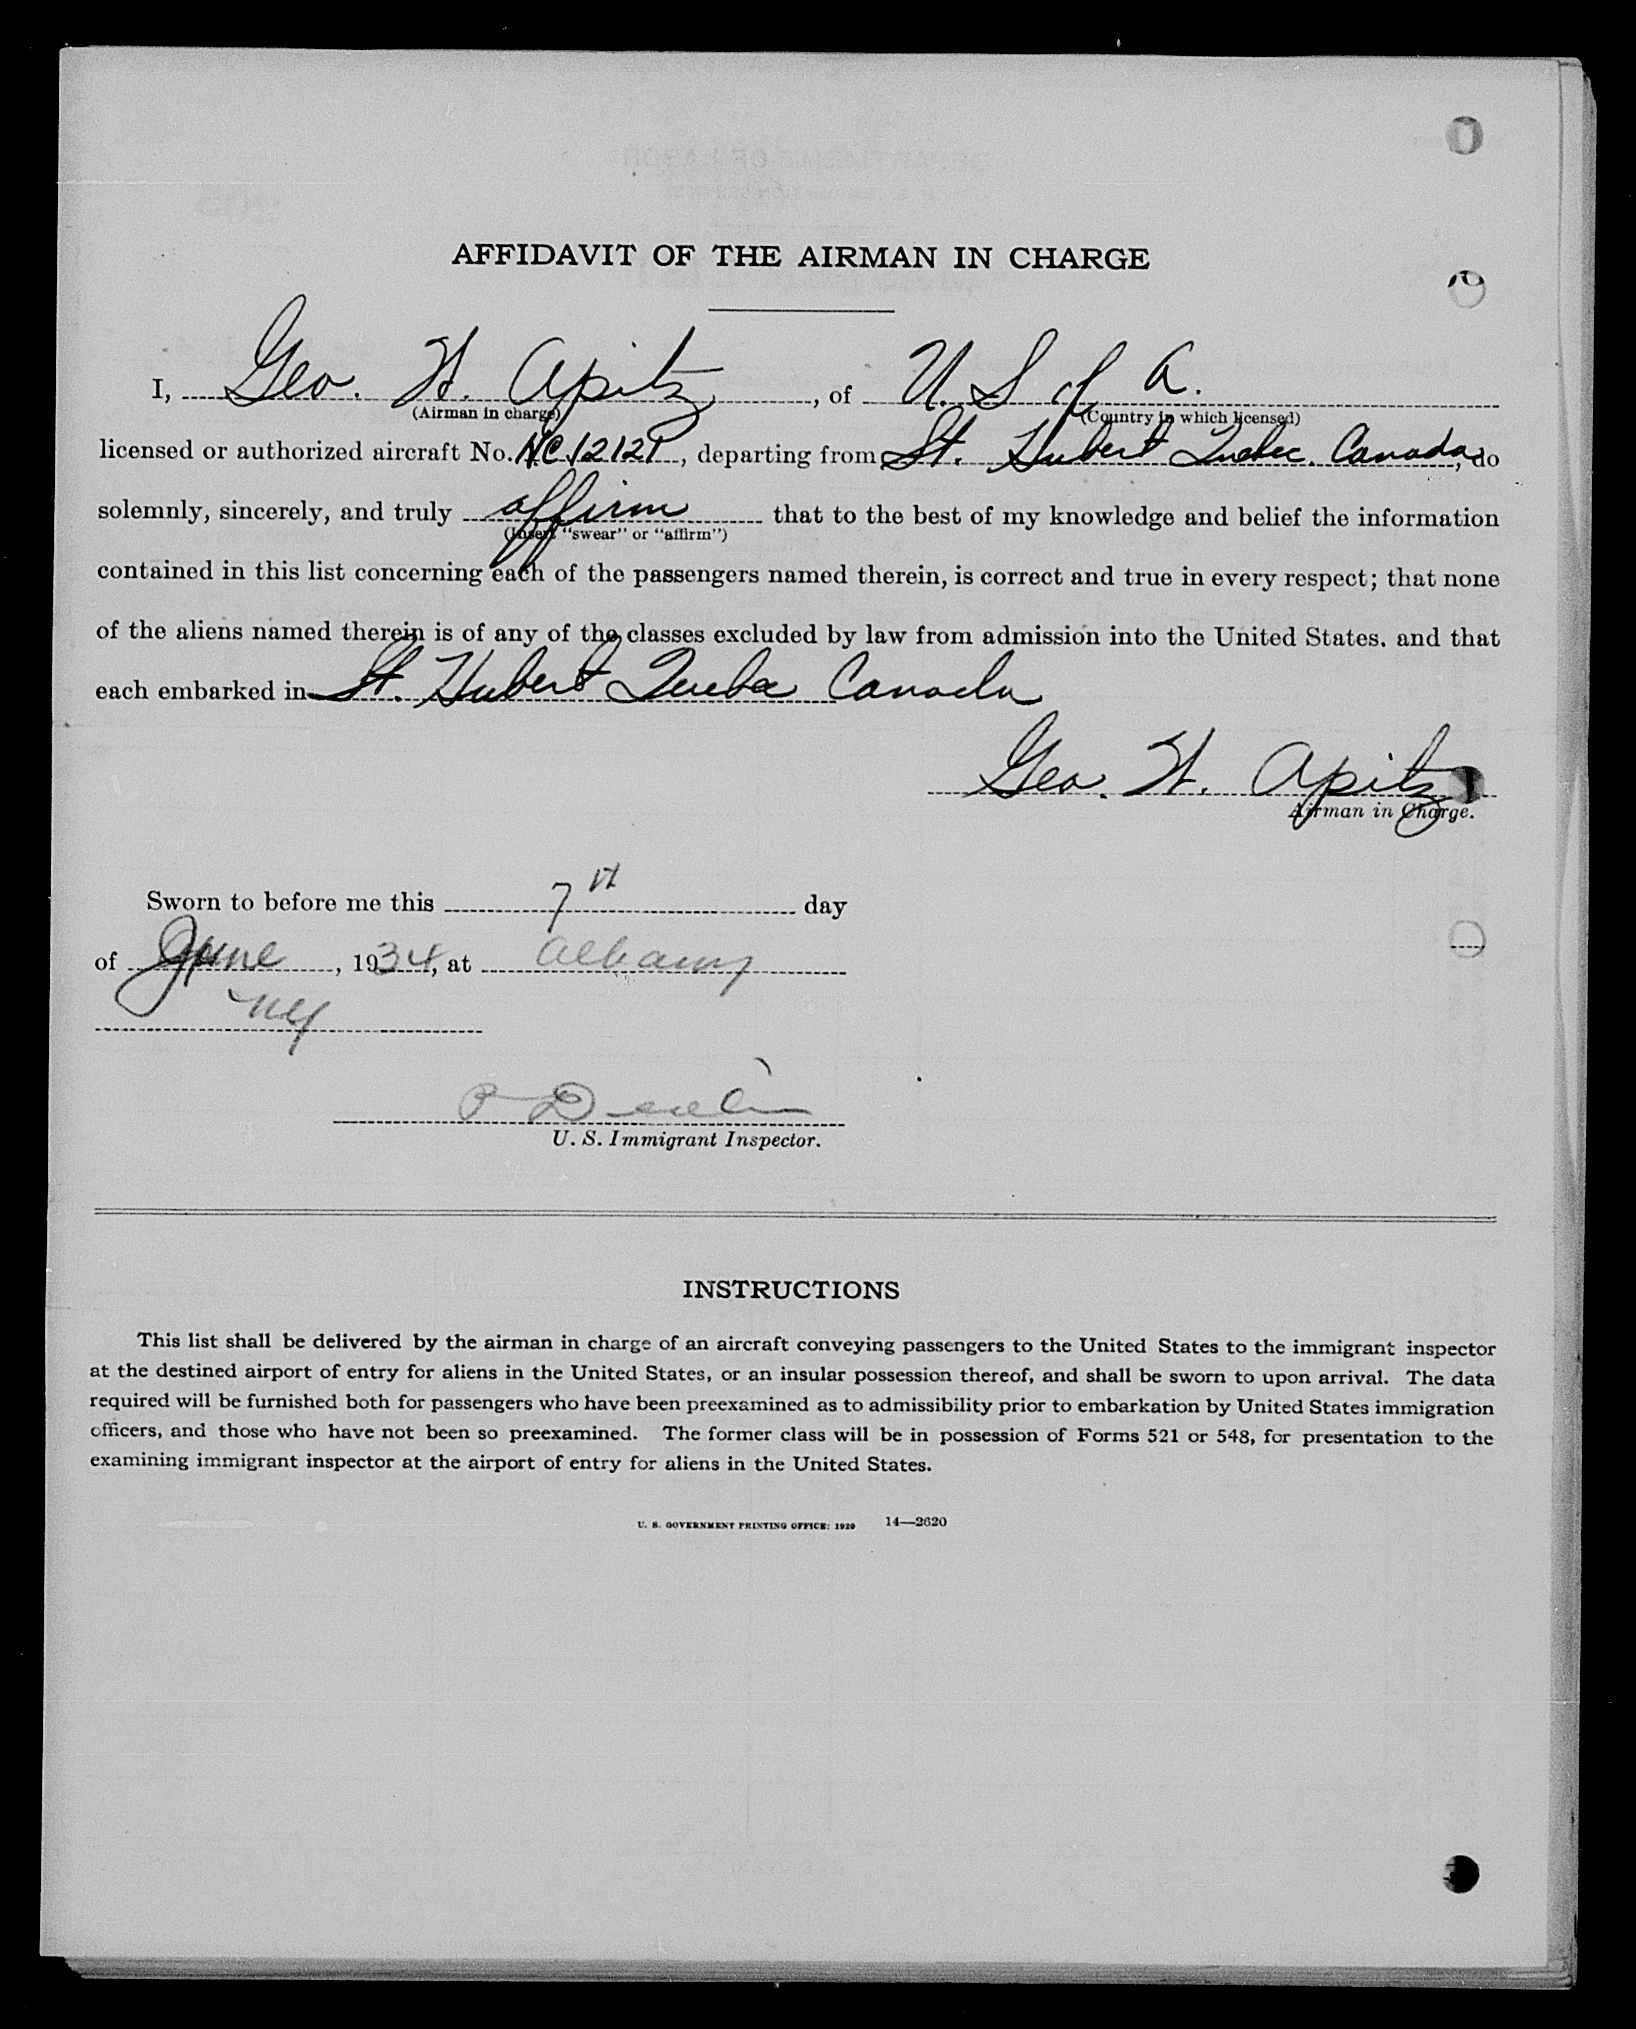 AFFIDAVIT OF THE AIRMAN IN CHARGE
I, Geo. H. Apitz, of U. S of A.
(Airman in charge) (Country in which licensed)
licensed or authorized aircraft No. NC12121, departing from St. Hubert Quebec. Canada, do
solemnly, sincerely, and truly affirm that to the best of my knowledge and belief the information
(Insert "swear" or "affirm")
contained in this list concerning each of the passengers named therein, is correct and true in every respect; that none
of the aliens named therein is of any of the classes excluded by law from admission into the United States. and that
each embarked in St. Hubert Quebec Canada
Geo. H. Apitz
Airman in Charge.
Sworn to before me this 7th day
of June, 1934, at Albany
NY
U. S. Immigrant Inspector.
INSTRUCTIONS
This list shall be delivered by the airman in charge of an aircraft conveying passengers to the United States to the immigrant inspector
at the destined airport of entry for aliens in the United States, or an insular possession thereof, and shall be sworn to upon arrival. The data
required will be furnished both for passengers who have been preexamined as to admissibility prior to embarkation by United States immigration
officers, and those who have not been so preexamined. The former class will be in possession of Forms 521 or 548, for presentation to the
examining immigrant inspector at the airport of entry for aliens in the United States.
U. S. GOVERNMENT PRINTING OFFICE: 1929 14—2620